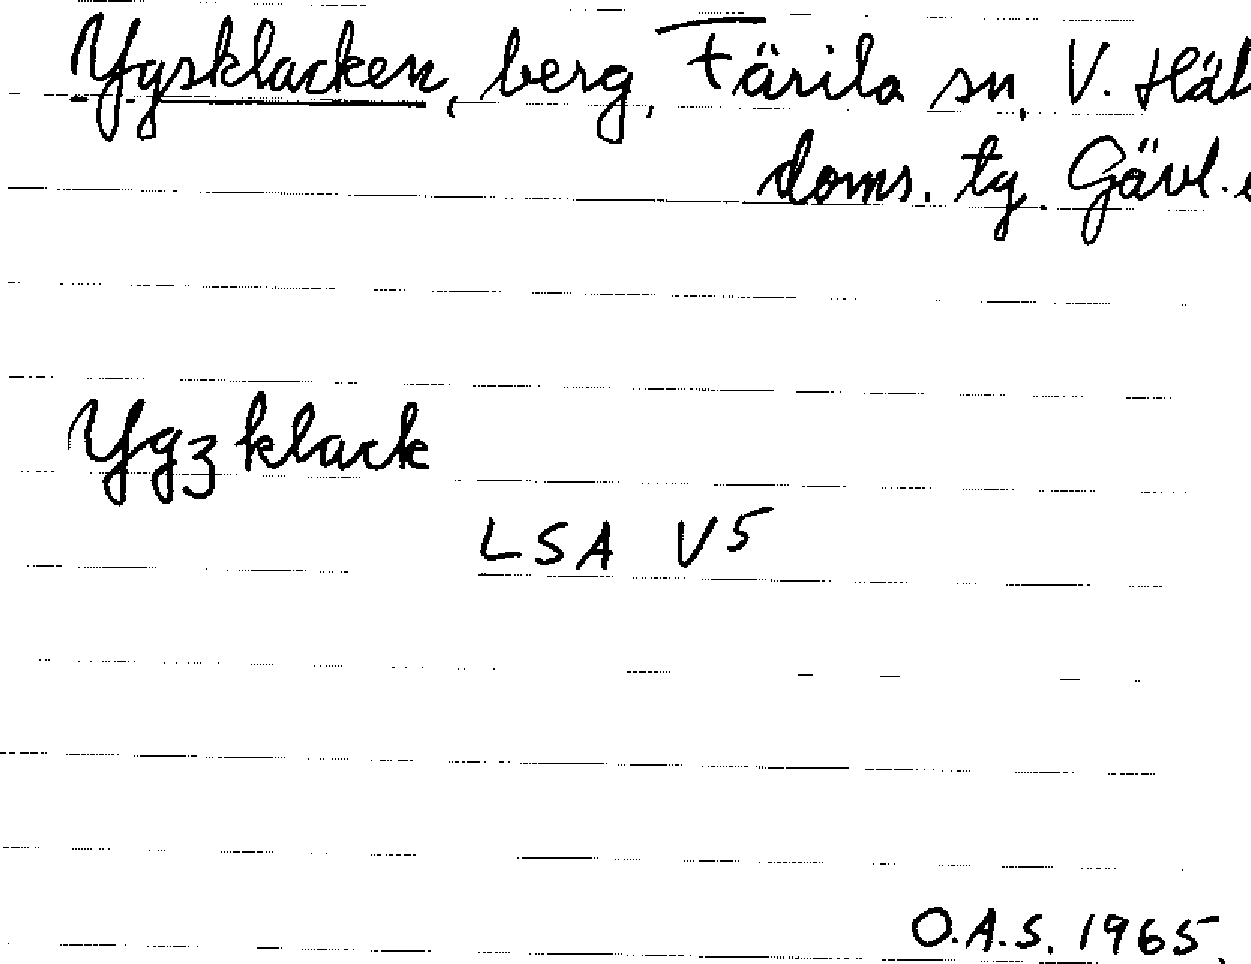 Ygsklacken, berg, Färila sn, V. Häl
doms. tg. Gävl.
Ygzklack
LSA V5
O.A.S. 1965.